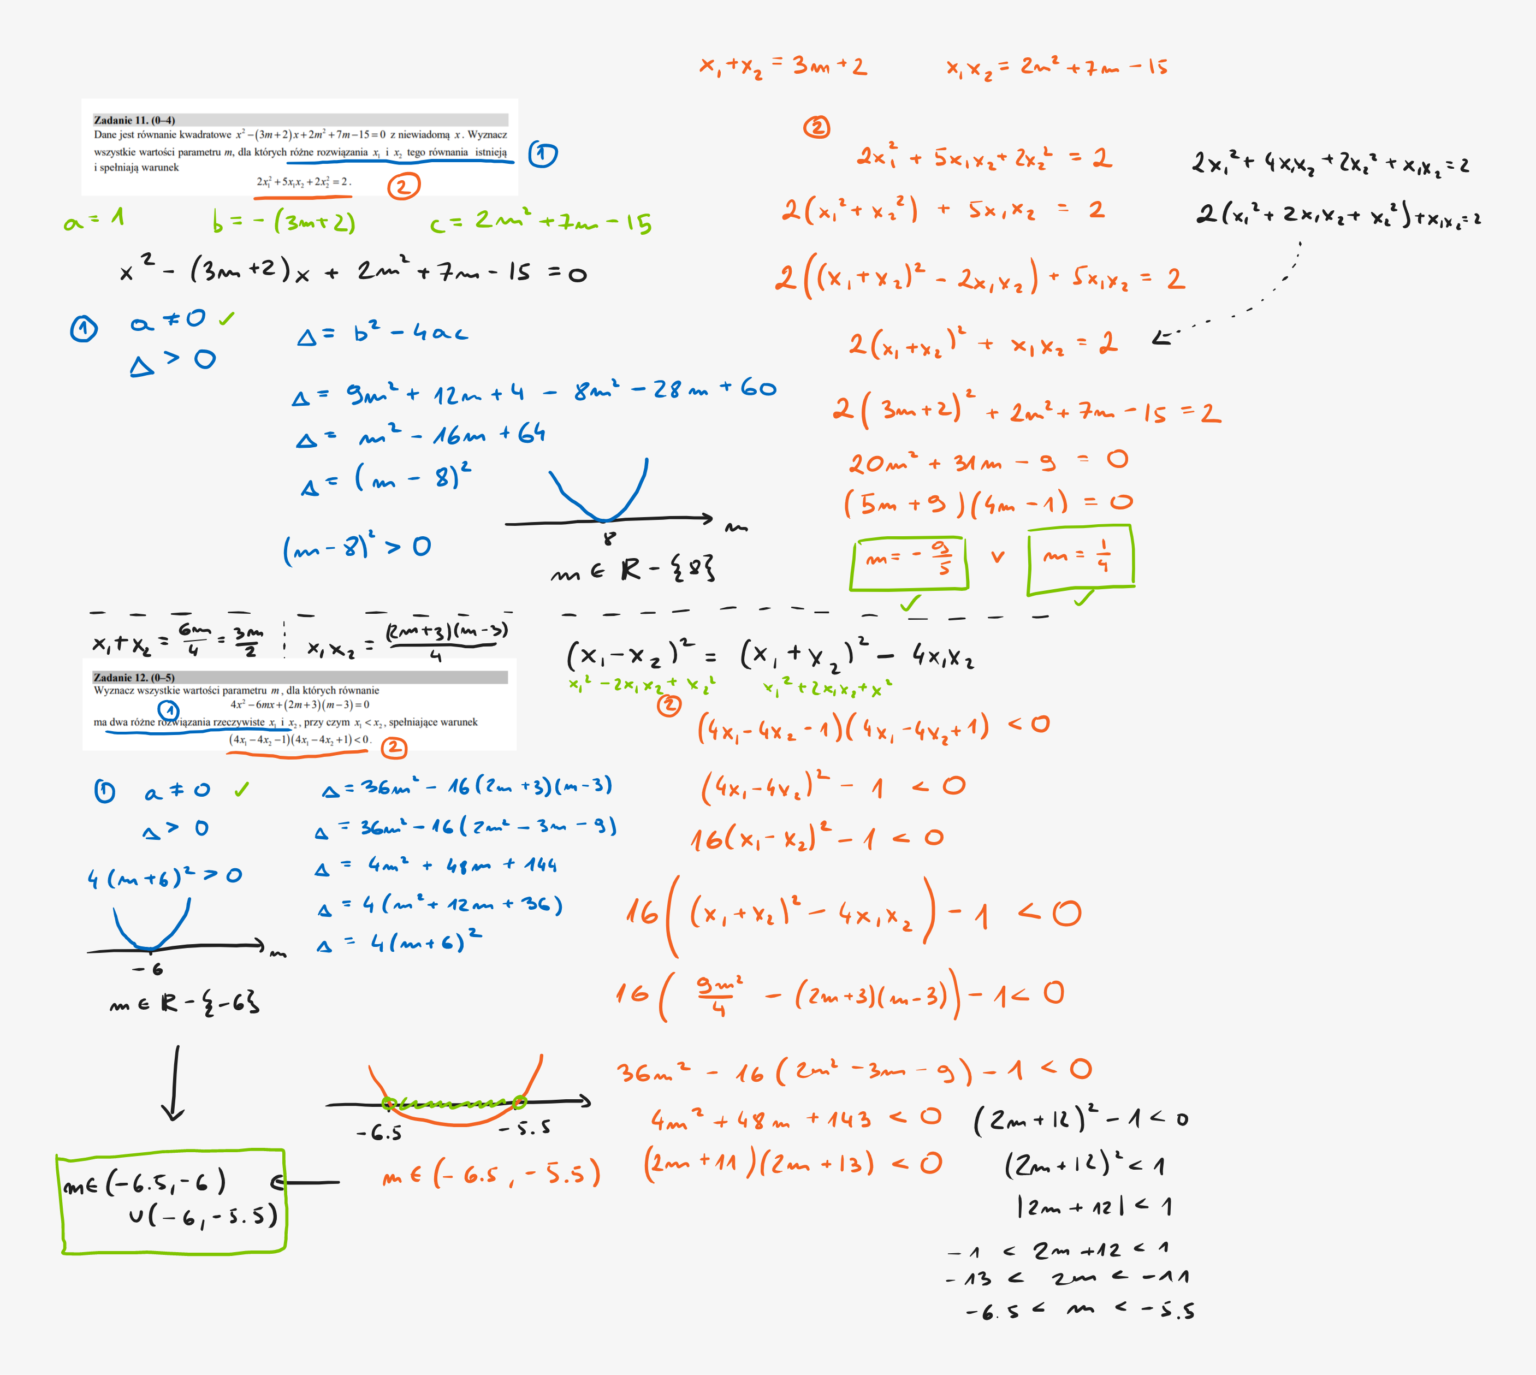 x₁+x₂ = 3m+2    x₁x₂ = 2m²+7m−15
Zadanie 11. (0–4)
Dane jest równanie kwadratowe x²−(3m+2)x+2m²+7m−15=0 z niewiadomą x. Wyznacz
wszystkie wartości parametru m, dla których różne rozwiązania x₁ i x₂ tego równania istnieją ①
i spełniają warunek
2x₁²+5x₁x₂+2x₂²=2. ②
a=1    b=−(3m+2)    c=2m²+7m−15
x²−(3m+2)x+2m²+7m−15=0
① a≠0 ✓
Δ>0
Δ=b²−4ac
Δ=9m²+12m+4−8m²−28m+60
Δ=m²−16m+64
Δ=(m−8)²
(m−8)²>0
8
m
m∈R−{8}
②
2x₁²+5x₁x₂+2x₂²=2
2(x₁²+x₂²)+5x₁x₂=2
2((x₁+x₂)²−2x₁x₂)+5x₁x₂=2
2(x₁+x₂)²+x₁x₂=2
2(3m+2)²+2m²+7m−15=2
20m²+31m−9=0
(5m+9)(4m−1)=0
m=−9/5 ∨ m=1/4
✓ ✓
2x₁²+4x₁x₂+2x₂²+x₁x₂=2
2(x₁²+2x₁x₂+x₂²)+x₁x₂=2
x₁+x₂=6m/4=3m/2    x₁x₂=(2m+3)(m−3)/4
(x₁−x₂)²=(x₁+x₂)²−4x₁x₂
x₁²−2x₁x₂+x₂²    x₁²+2x₁x₂+x²
Zadanie 12. (0–5)
Wyznacz wszystkie wartości parametru m, dla których równanie
4x²−6mx+(2m+3)(m−3)=0
①
ma dwa różne rozwiązania rzeczywiste x₁ i x₂, przy czym x₁<x₂, spełniające warunek
(4x₁−4x₂−1)(4x₁−4x₂+1)<0. ②
① a≠0 ✓
Δ>0
4(m+6)²>0
−6
m
m∈R−{−6}
Δ=36m²−16(2m+3)(m−3)
Δ=36m²−16(2m²−3m−9)
Δ=4m²+48m+144
Δ=4(m²+12m+36)
Δ=4(m+6)²
②
(4x₁−4x₂−1)(4x₁−4x₂+1)<0
(4x₁−4x₂)²−1<0
16(x₁−x₂)²−1<0
16((x₁+x₂)²−4x₁x₂)−1<0
16(9m²/4−(2m+3)(m−3))−1<0
36m²−16(2m²−3m−9)−1<0
4m²+48m+143<0
(2m+11)(2m+13)<0
(2m+12)²−1<0
(2m+12)²<1
|2m+12|<1
−1<2m+12<1
−13<2m<−11
−6.5<m<−5.5
−6.5    −5.5
m∈(−6.5,−5.5)
m∈(−6.5,−6)
∪(−6,−5.5)